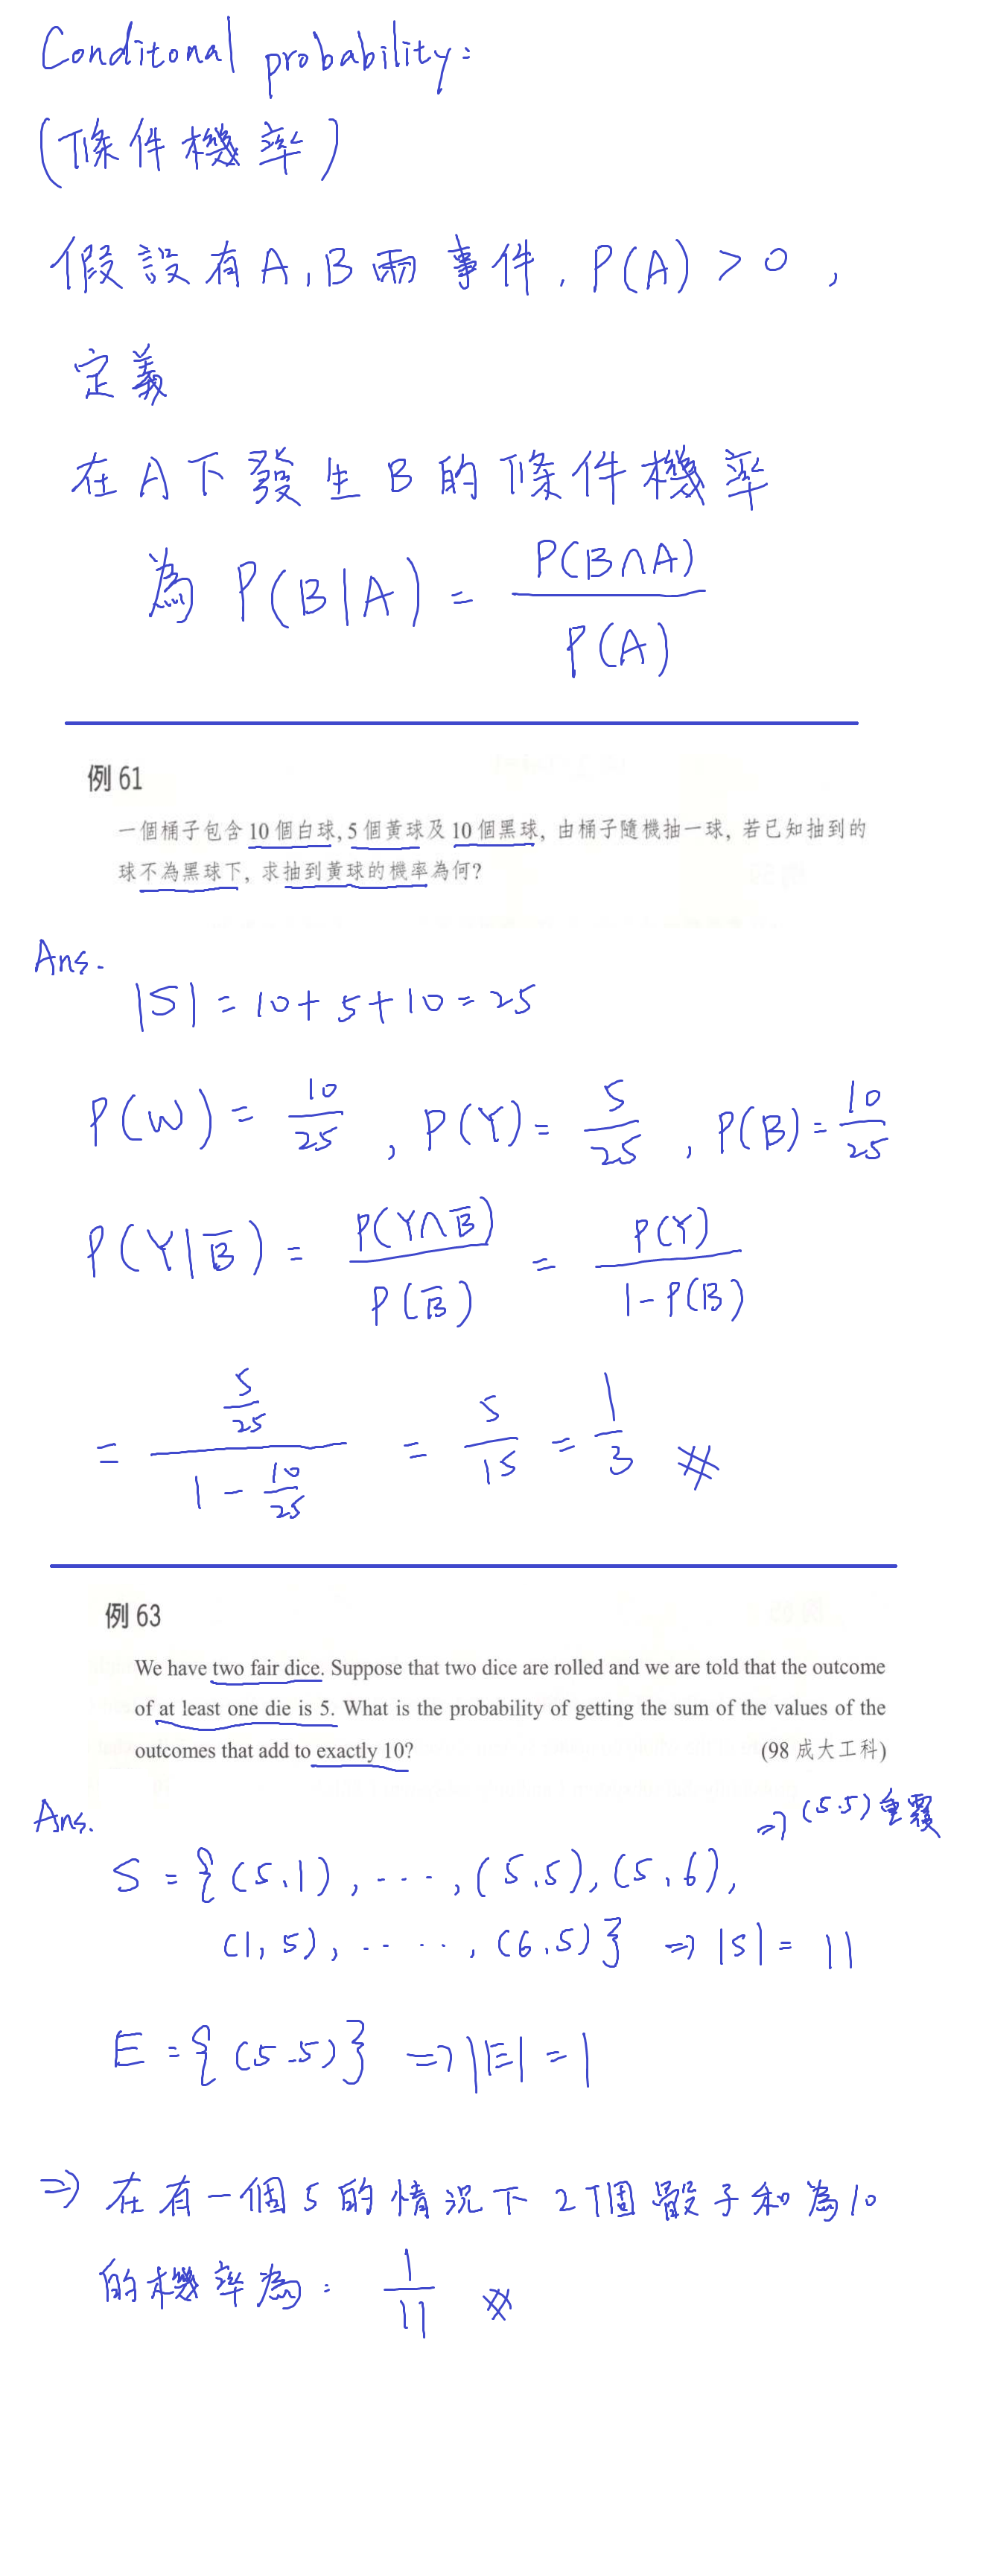 Conditonal probability:
(條件機率)
假設有A,B兩事件, P(A) > 0 ,
定義
在A下發生B的條件機率
為 P(B|A) = P(B∩A) / P(A)
例 61
一個桶子包含 10 個白球, 5 個黃球及 10 個黑球, 由桶子隨機抽一球, 若已知抽到的
球不為黑球下, 求抽到黃球的機率為何?
Ans.
|S| = 10 + 5 + 10 = 25
P(W) = 10/25 , P(Y) = 5/25 , P(B) = 10/25
P(Y|B̅) = P(Y∩B̅) / P(B̅) = P(Y) / 1-P(B)
= 5/25 / 1 - 10/25 = 5/15 = 1/3 #
例 63
We have two fair dice. Suppose that two dice are rolled and we are told that the outcome
of at least one die is 5. What is the probability of getting the sum of the values of the
outcomes that add to exactly 10?
(98 成大工科)
Ans.
⇒ (5.5) 重覆
S = {(5.1), ...., (5.5), (5.6),
(1,5), ....., (6.5)} ⇒ |S| = 11
E = {(5.5)} ⇒ |E| = 1
⇒ 在有一個5的情況下2個骰子和為10
的機率為: 1/11 #